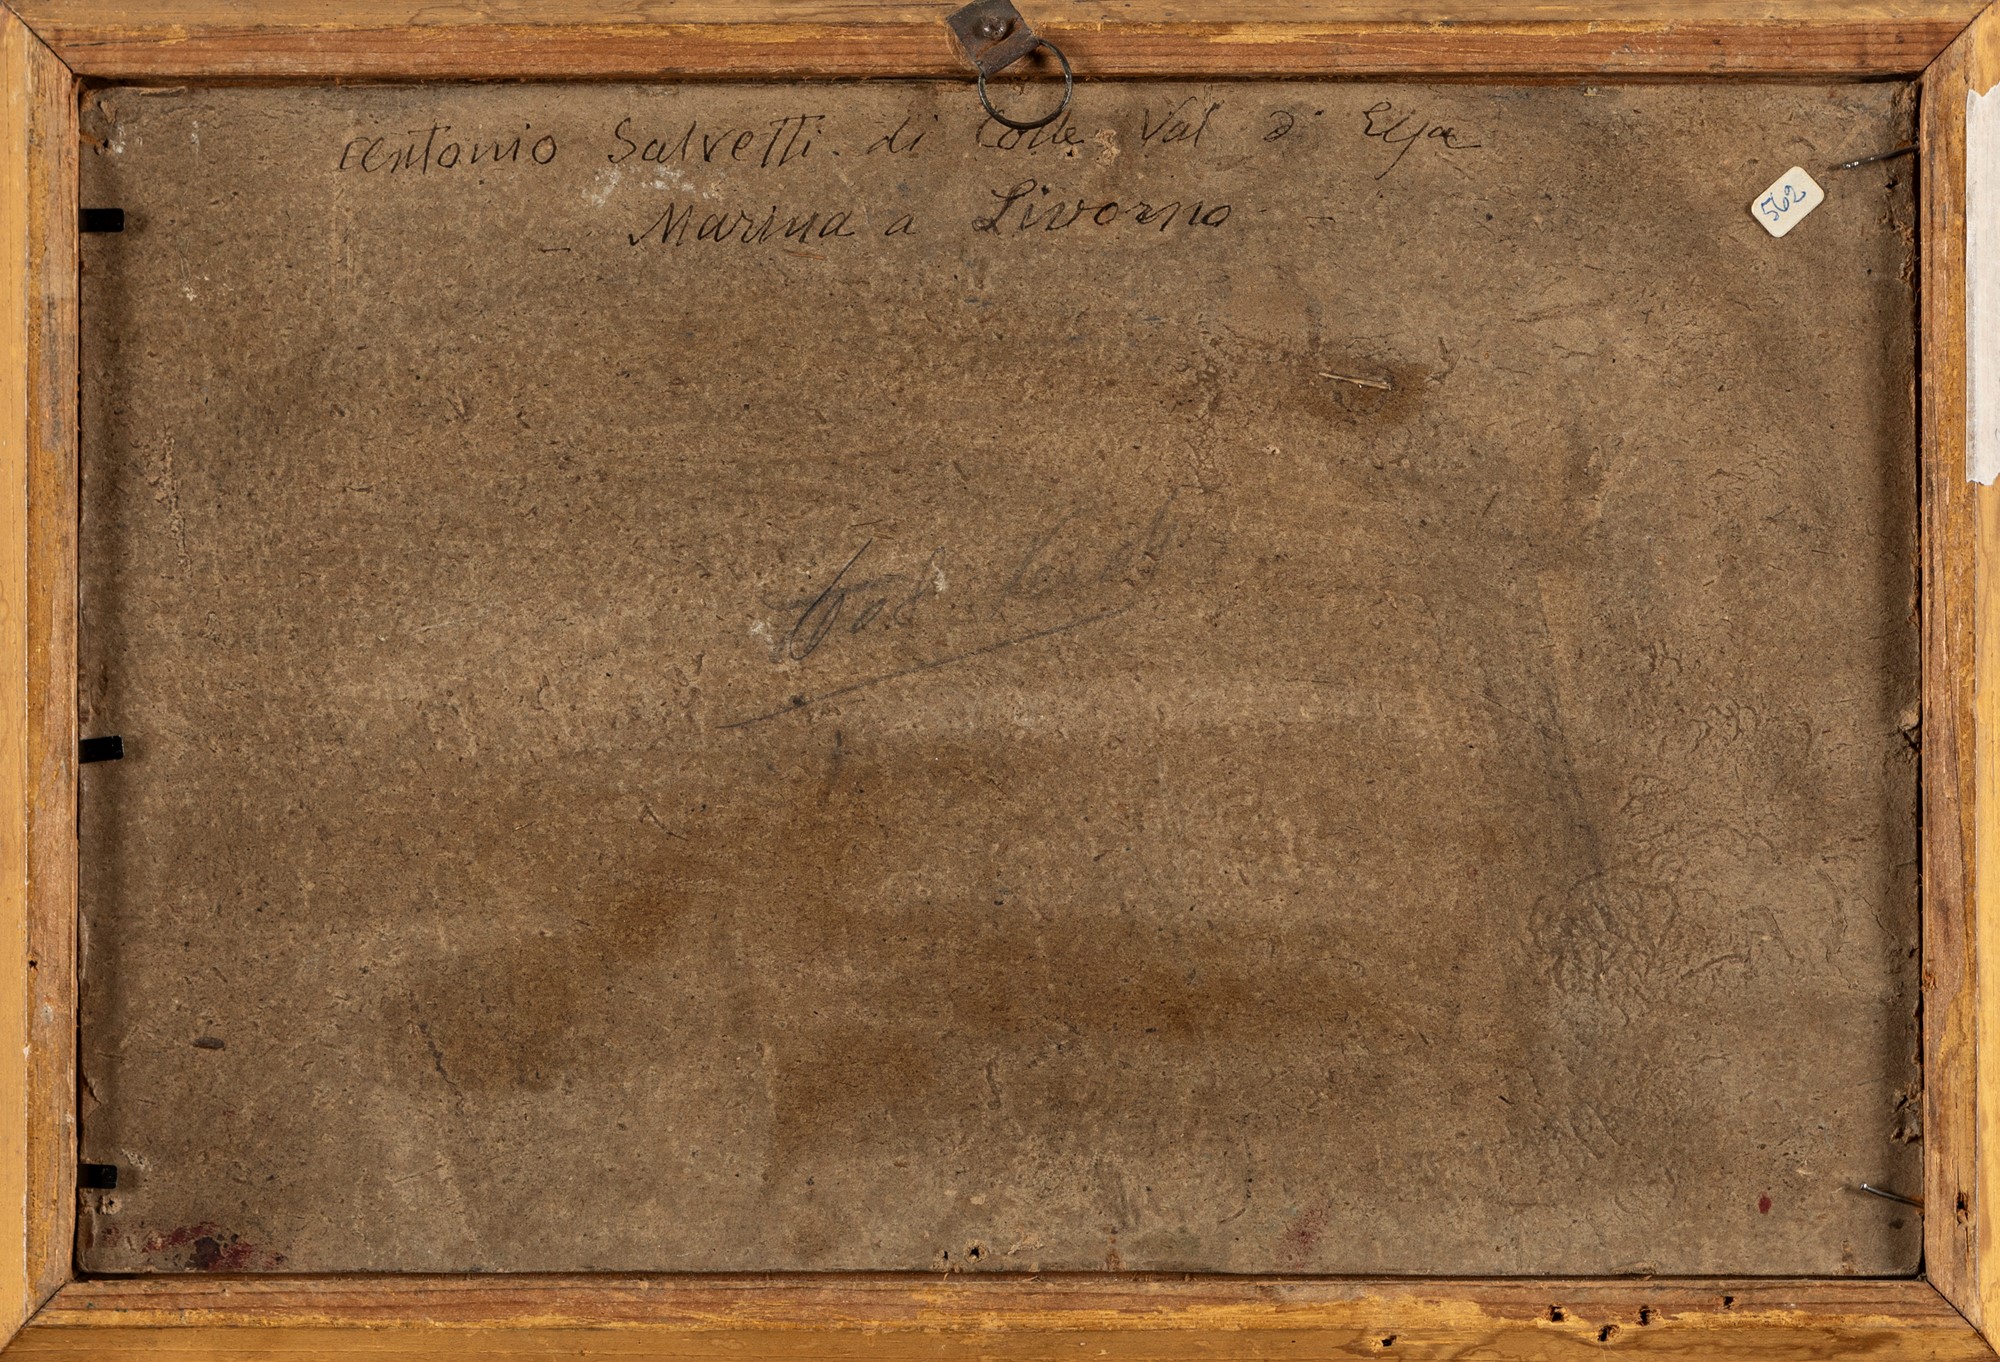 Antonio Salvetti. di Colle Val d' Elsa
- Marina a Livorno -
562